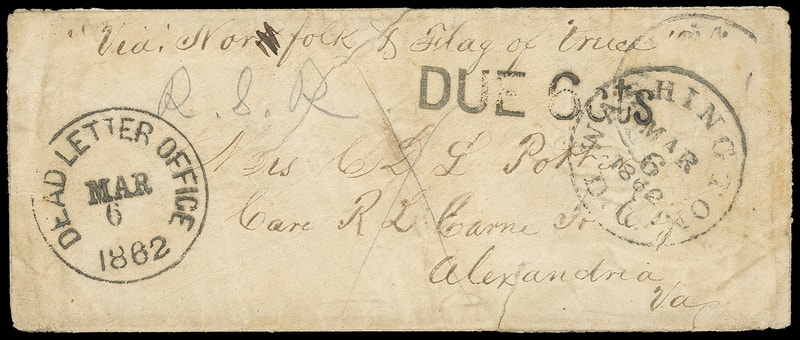 "Via. Norfolk & Flag of truce"
R. S. R.
DUE 6 cts
WASHINGTON
MAR
6
1862
DEAD LETTER OFFICE
MAR
6
1862
Mrs C D L Potts
Care R L Carne Jr
Alexandria
Va